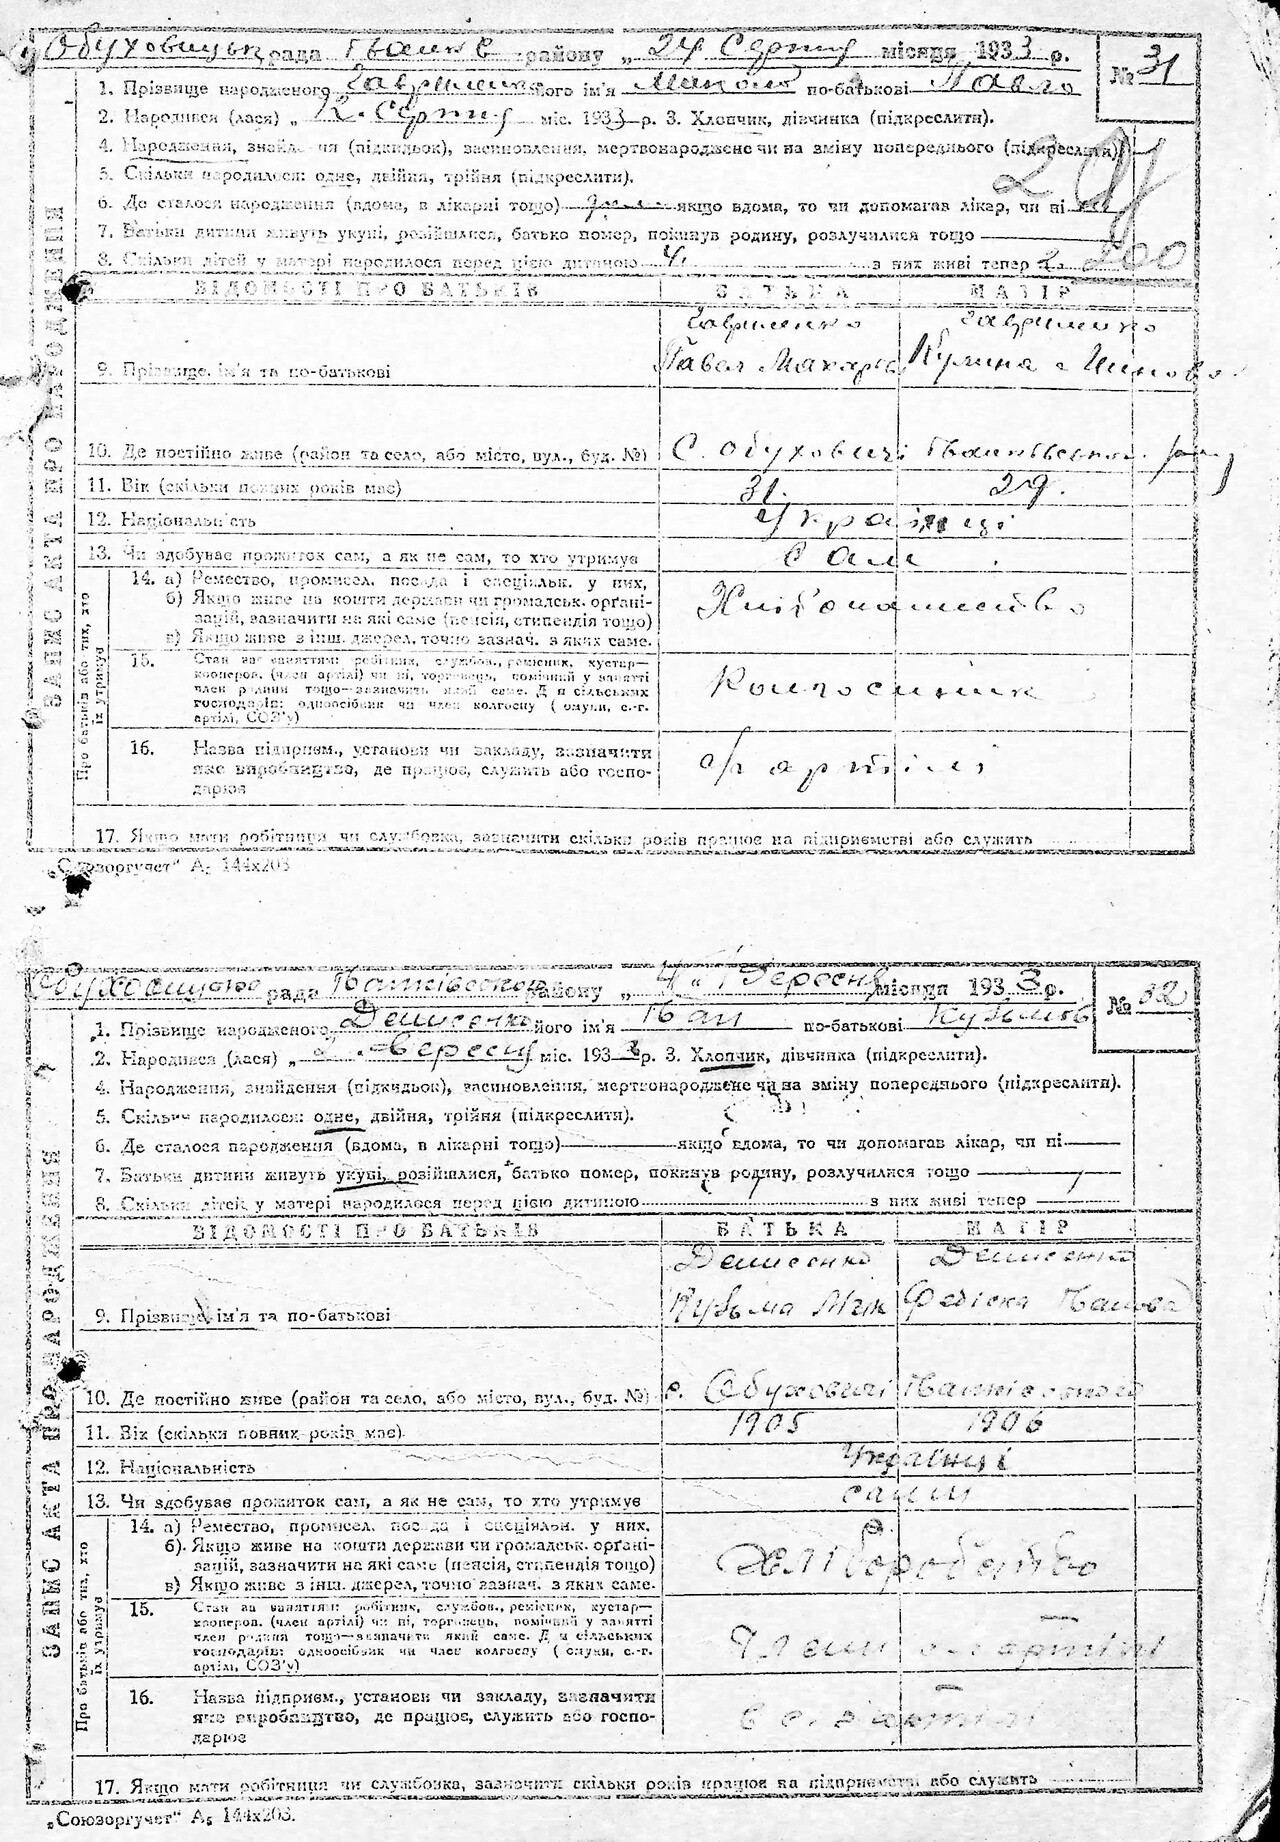 Обуховицька рада Іванків району „ 24 Серпня місяця 1933 р.
№ 31
1. Прізвище народженого Гавриленко його ім'я Микола по-батькові Павло
2. Народився (лася) „ Серпня міс. 1933 р. 3. Хлопчик, дівчинка (підкреслити).
4. Народження, знайдення (підкидьок), засиновлення, мертвонароджене чи на зміну попереднього (підкреслити)
5. Скільки народилося: одне, двійня, трійня (підкреслити).
6. Де сталося народження (вдома, в лікарні тощо) якщо вдома, то чи допомагав лікар, чи ні
7. Батьки дитини живуть укупі, розійшлися, батько помер, покинув родину, розлучилися тощо
200
8. Скільки дітей у матері народилося перед цією дитиною 4 з них живі тепер 2
ЗАПИС АКТА ПРО НАРОДЖЕННЯ
ВІДОМОСТІ ПРО БАТЬКІВ БАТЬКА МАТІР
Гавриленко Гавриленко
9. Прізвище, ім'я та по-батькові Павол Макаров Кулина
10. Де постійно живе (район та село, або місто, вул., буд. №) С. Обуховичі Іванківського
11. Вік (скільки повних років має) 31. 29.
12. Національність Українці
13. Чи здобуває прожиток сам, а як не сам, то хто утримує Сам
Про батьків або тих, хто їх утримує
14. а) Ремество, промисел, посада і спеціяльн. у них.
б) Якщо живе на кошти держави чи громадськ. орґані-
зацій, зазначити на які саме (пенсія, стипендія тощо)
в) Якщо живе з інш. джерел, точно зазнач. з яких саме.
15. Стан за заняттям: робітник, службов., ремісник, кустар—
кооперов. (член артілі) чи ні, торговець, помічний у занятті
член родини тощо—зазначить який саме. Для сільських
господарів: одноосібник чи член колгоспу (комуни, с.-г.
артілі, СОЗ'у)
Колгоспник
16. Назва підприєм., установи чи закладу, зазначити
яке виробництво, де працює, служить або госпо-
дарює
с/г артілі
17. Якщо мати робітниця чи службовка, зазначити скільки років працює на підприємстві або служить
„Союзоргучет“ А5 144х203
Обуховицька рада Іванківського району „ 4 “ Вересня місяця 1933 р.
№ 32
1. Прізвище народженого Денисенко його ім'я Іван по-батькові Кузьмов
2. Народився (лася) „ 2 Вересня міс. 1933 р. 3. Хлопчик, дівчинка (підкреслити).
4. Народження, знайдення (підкидьок), засиновлення, мертвонароджене чи на зміну попереднього (підкреслити).
5. Скільки народилося: одне, двійня, трійня (підкреслити).
6. Де сталося народження (вдома, в лікарні тощо) якщо вдома, то чи допомагав лікар, чи ні
7. Батьки дитини живуть укупі, розійшлися, батько помер, покинув родину, розлучилися тощо
8. Скільки дітей у матері народилося перед цією дитиною 1 з них живі тепер 1
ЗАПИС АКТА ПРО НАРОДЖЕННЯ
ВІДОМОСТІ ПРО БАТЬКІВ БАТЬКА МАТІР
Денисенко Денисенко
9. Прізвище, ім'я та по-батькові Кузьма Мик Федіска
10. Де постійно живе (район та село, або місто, вул., буд. №) с. Обуховичі Іванківського
11. Вік (скільки повних років має). 1905 1906
12. Національність Українці
13. Чи здобуває прожиток сам, а як не сам, то хто утримує сами
Про батьків або тих, хто їх утримує
14. а) Ремество, промисел, посада і спеціяльн. у них.
б). Якщо живе на кошти держави чи громадськ. орґані-
зацій, зазначити на які саме (пенсія, стипендія тощо)
в) Якщо живе з інш. джерел, точно зазнач. з яких саме.
Хліборобство
15. Стан за заняттям: робітник, службов., ремісник, кустар—
кооперов. (член артілі) чи ні, торговець, помічний у занятті
член родини тощо—зазначити який саме. Для сільських
господарів: одноосібник чи член колгоспу (комуни, с.-г.
артілі, СОЗ'у)
Члени артілі
16. Назва підприєм., установи чи закладу, зазначити
яке виробництво, де працює, служить або госпо-
дарює
в с. г артілі
17. Якщо мати робітниця чи службовка, зазначити скільки років працює на підприємстві або служить
„Союзоргучет“ А5 144х203.